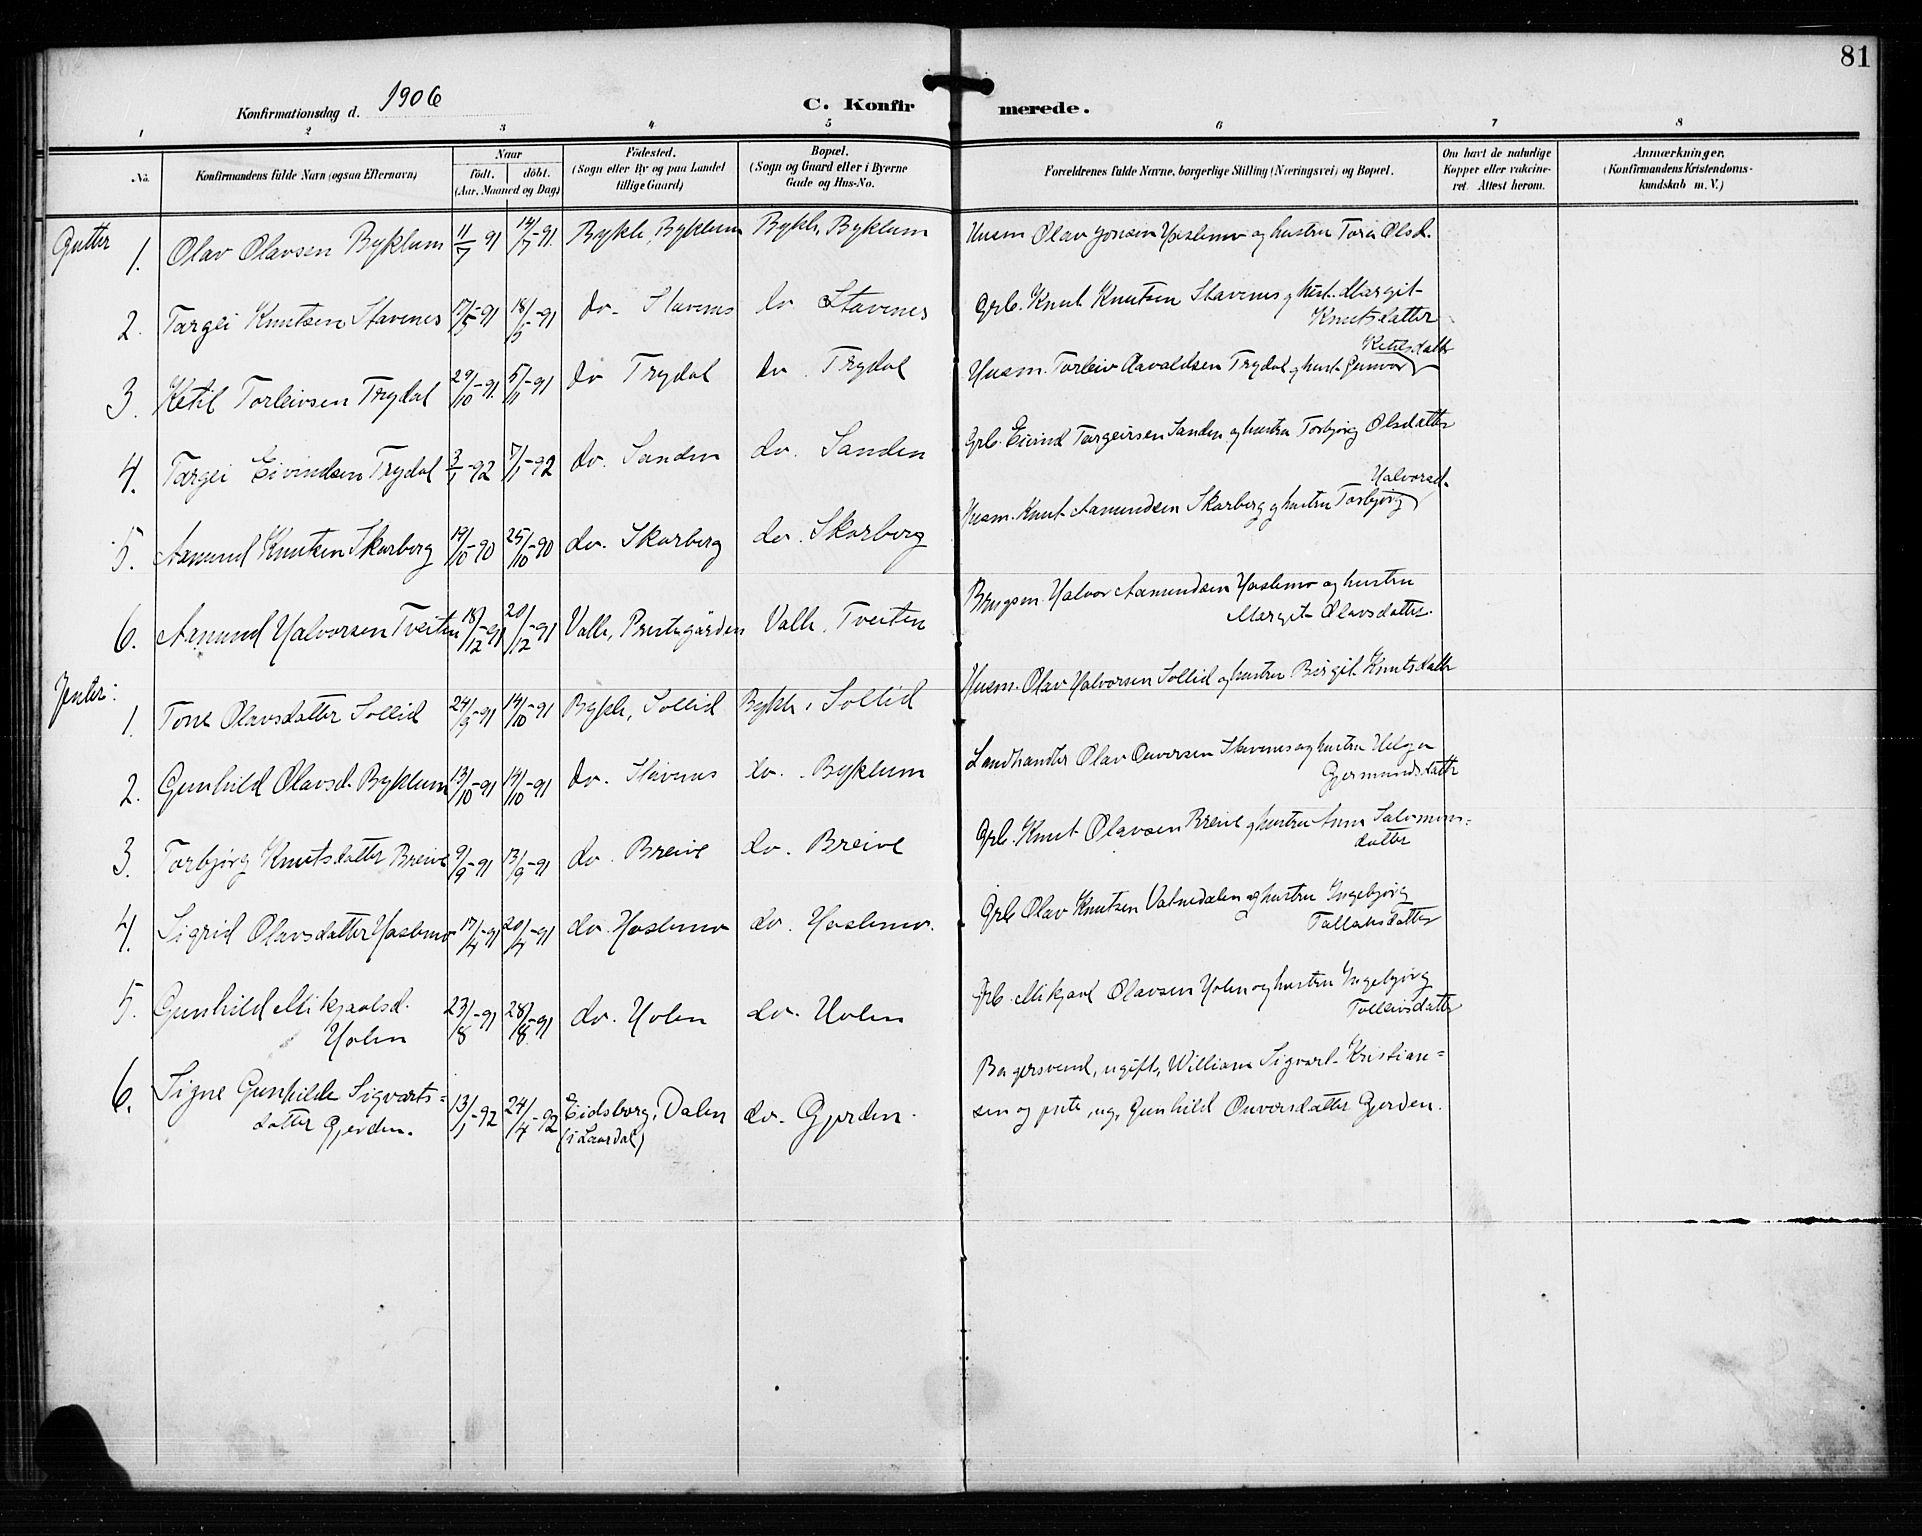 81
Konfirmationsdag d. 1906
C. Konfirmerede.
1 2 3 4 5 6 7 8
No.
Konfirmandens fulde Navn (ogsaa Efternavn)
Naar
födt. döbt.
(Aar, Maaned og Dag)
Födested.
(Sogn eller By og paa Landet
tillige Gaard)
Bopæl.
(Sogn og Gaard eller i Byerne
Gade og Hus-No.
Forældrenes fulde Navne, borgerlige Stilling (Næringsvei) og Bopæl.
Om havt de naturlige
Kopper eller vakcine-
ret. Attest herom.
Anmærkninger.
(Konfirmandens Kristendoms-
kundskab m. V.)
Gutter 1. Olav Olavsen Byklum 11/7-91 14/7-91. Bykle, Byklum Bykle, Byklum Husm. Olav Jonsen Hoslemo og hustru Torei Olsd.
2. Targei Knutsen Stavenes 17/5-91 18/5-91 do- Stavenes do Stavenes Grb. Knut Knutsen Stavenes og hust. Margit
Knutsdatter
3. Ketil Torleivsen Trydal 29/10-91. 5/11-91 do Trydal do. Trydal Husm. Torleiv Aavaldsen Trydal og hust. Gunvor
Ketilsdatter
4. Targei Eivindsen Trydal 3/1-92 7/1-92 do. Sanden do. Sanden Grb. Eivind Targeirsen Sanden og hustru Torbjørg Olsdatter
5. Aamund Knutsen Skarberg 19/10-90 25/10-90 do. Skarberg do. Skarberg Husm. Knut Aamundsen Skarberg og hustru Torbjørg
Halvorsd.
6. Aamund Halvorsen Tveiten 18/12-91 20/12-91 Valle, Prestegården Valle, Tveiten Brugsm. Halvor Aamundsen Hoslemo og hustru
Margit Olavsdatter.
Jenter: 1. Tone Olavsdatter Sollid 24/9-91 14/10-91 Bykle, Sollid Bykle, Sollid Husm. Olav Halvorsen Sollid og hustru Birgit Knutsdatter
2. Gunhild Olavsd. Byklum 13/10-91 14/10-91 do. Stavenes do. Byklum Landhandler Olav Onversen Stavenes og hustru Helga
Gjermundsdatter
3. Torbjørg Knutsdatter Breive 9/9-91 13/9-91 do. Breive do. Breive Grb. Knut Olavsen Breive og hustru Anne Salomons=
datter
4. Sigrid Olavsdatter Hoslemo 17/4-91 20/4-91 do. Hoslemo do. Hoslemo. Grb Olav Knutsen Vatnedalen og hustru Ingebjørg
Tallaksdatter
5. Gunhild Mikjaalsd. 23/8-91 28/8-91 do. Holen do. Holen Grb. Mikjaal Olavsen Holen og hustru Ingebjørg
Holen Tolleivsdatter
6. Signe Gunhilde Sigvarts= 13/1-92 24/4-92 Eidsborg, Dalen do. Gjerden. Bagersvend, ugift, William Sigvart Kristian=
datter Gjerden. (i Laardal) sen og pike, ug, Gunhild Onversdatter Gjerden.